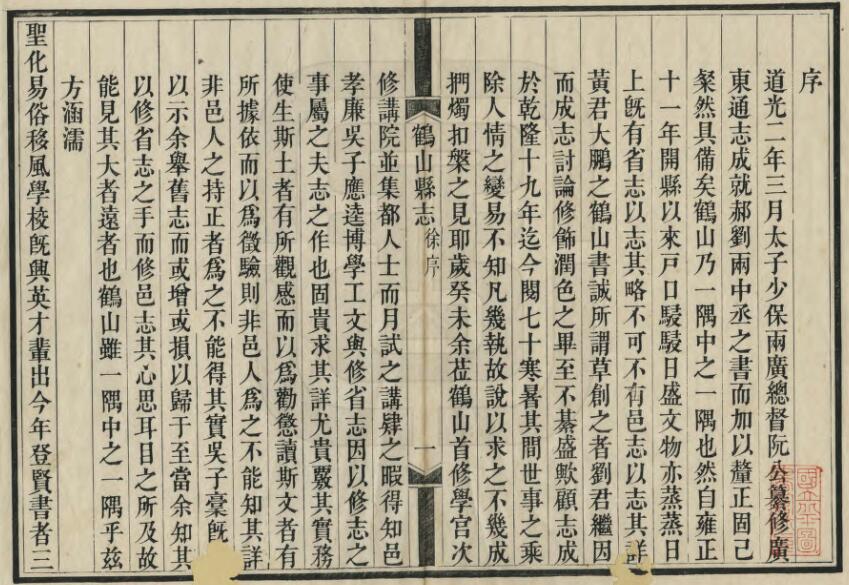 序
道光二年三月太子少保兩廣總督阮公纂修廣
東通志成就郝劉兩中丞之書而加以釐正固已
粲然具備矣鶴山乃一隅中之一隅也然自雍正
十一年開縣以來戸口駸駸日盛文物亦蒸蒸日
上旣有省志以志其略不可不有邑志以志其詳
黃君大鵬之鶴山書誠所謂草創之者劉君繼因
而成志討論修飾潤色之畢至不綦盛歟顧志成
於乾隆十九年迄今閱七十寒暑其間世事之乘
除人情之變易不知凡幾執故說以求之不幾成
捫燭扣槃之見耶歲癸未余莅鶴山首修學宫次
鶴山縣志
徐序
一
修講院並集都人士而月試之講肄之暇得知邑
孝廉吳子應逵博學工文與修省志因以修志之
事屬之夫志之作也固貴求其詳尤貴覈其實務
使生斯土者有所觀感而以爲勸懲讀斯文者有
所據依而以爲徵驗則非邑人爲之不能知其詳
非邑人之持正者爲之不能得其實吳子稾旣
以示余舉舊志而或增或損以歸于至當余知其
以修省志之手而修邑志其心思耳目之所及故
能見其大者遠者也鶴山雖一隅中之一隅乎兹
方涵濡
聖化易俗移風學校旣興英才輩出今年登賢書者三